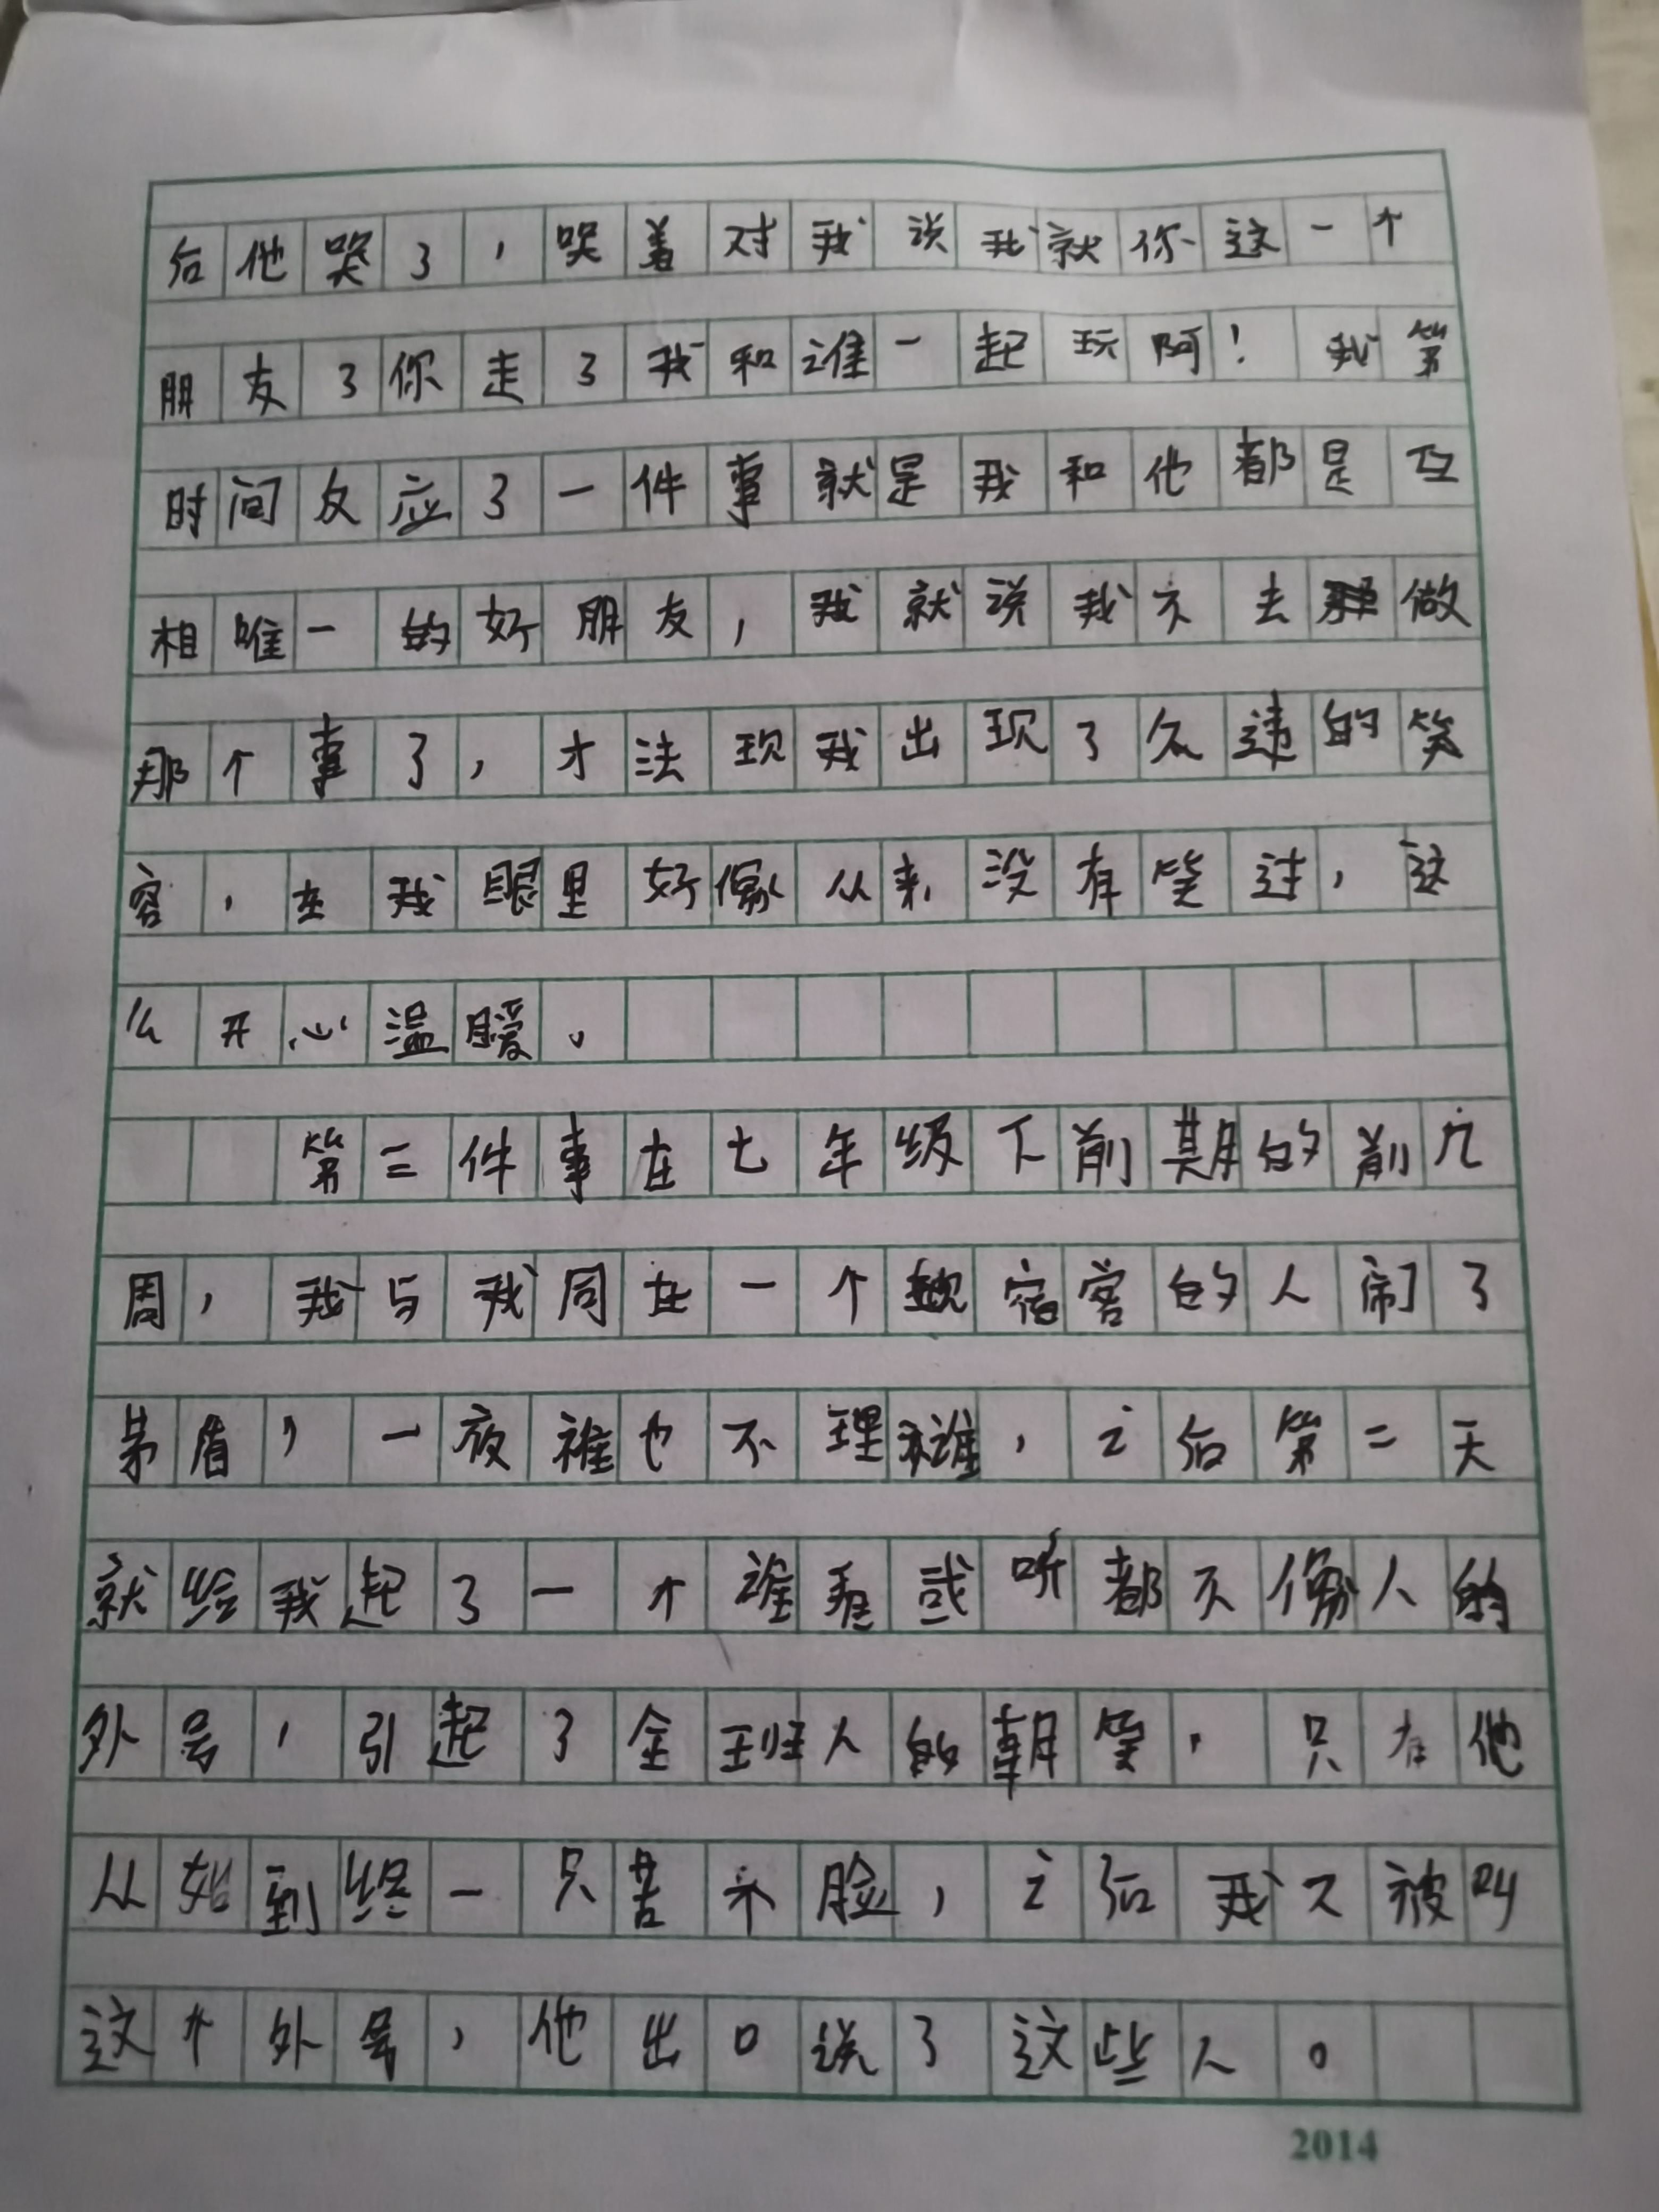 后他哭了，哭着对我说我就你这一个
朋友了你走了我和谁一起玩阿！我第
时间反应了一件事就是我和他都是互
相唯一的好朋友，我就说我不去做
那个事了，才法现我出现了久违的笑
容，在我眼里好像从来没有笑过，这
么开心温暖。
第二件事在七年级下前期的前几
周，我与我同在一个宿客的人闹了
茅盾，一夜谁也不理谁，之后第二天
就给我起了一个谁看或听都不像人的
外号，引起了全班人的朝笑，只有他
从始到终一只苦不脸，之后我又被叫
这个外号，他出口说了这些人。
2014